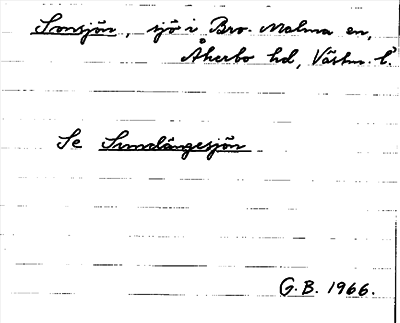 Sonsjön, sjö i Bro-Malma sn,
Åkerbo hd, Västm. l.
Se Sundängesjön
G.B. 1966.